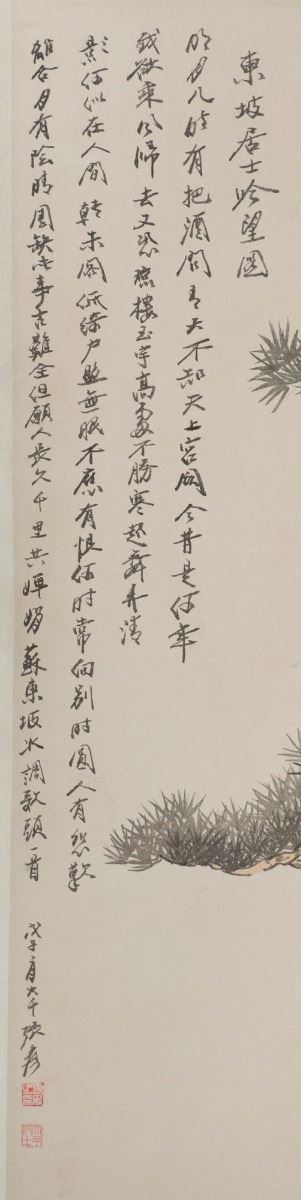 東坡居士吟望圖
明月几時有把酒問青天不知天上宮闕今昔是何年
我欲乘風歸去又恐瓊樓玉宇高處不勝寒起舞弄清
影何似在人間轉朱閣低綺户照無眠不應有恨何时常向别时圓人有悲歡
離合月有陰晴圆缺此事古難全但願人長久千里共嬋娟 蘇東坡水調歌頭一首
戊子 月大千張爰